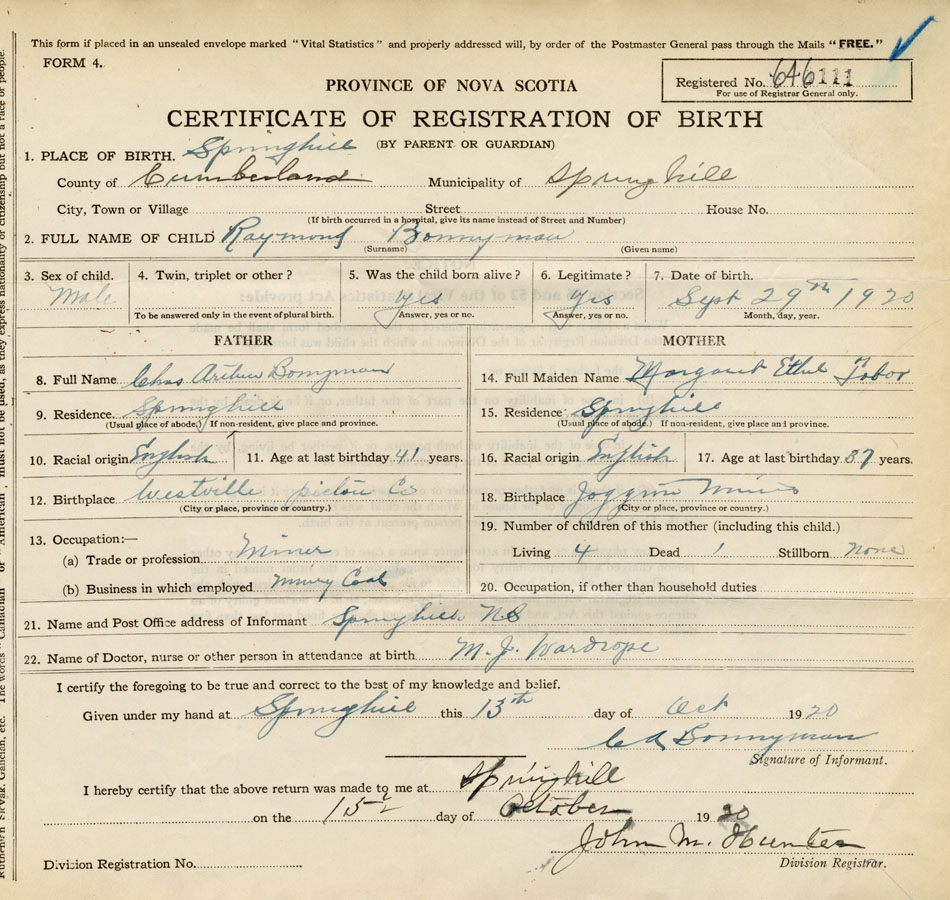 This form if placed in an unsealed envelope marked "Vital Statistics" and properly addressed will, by order of the Postmaster General pass through the Mails "FREE."
FORM 4.
Registered No. 646111
For use of Registrar General only.
PROVINCE OF NOVA SCOTIA
CERTIFICATE OF REGISTRATION OF BIRTH
(BY PARENT OR GUARDIAN)
1. PLACE OF BIRTH. Springhill
County of Cumberland Municipality of Spring hill
City, Town or Village Street House No.
(If birth occurred in a hospital, give its name instead of Street and Number)
2. FULL NAME OF CHILD Raymond Bonnyman
(Surname) (Given name)
3. Sex of child. Male
4. Twin, triplet or other?
To be answered only in the event of plural birth.
5. Was the child born alive? yes
Answer, yes or no.
6. Legitimate? Yes
Answer, yes or no.
7. Date of birth. Sept 29th 1920
Month, day, year.
FATHER
8. Full Name Chas Arthur Bonnyman
9. Residence. Springhill
(Usual place of abode.) If non-resident, give place and province.
10. Racial origin English 11. Age at last birthday 41 years.
12. Birthplace Westville pictou Co
(City or place, province or country.)
13. Occupation:—
(a) Trade or profession Miner
(b) Business in which employed Coal
MOTHER
14. Full Maiden Name Margaret Ethel Tobor
15. Residence Springhill
(Usual place of abode.) If non-resident, give place and province.
16. Racial origin English 17. Age at last birthday 37 years.
18. Birthplace Joggin Mines
(City or place, province or country.)
19. Number of children of this mother (including this child.)
Living 4 Dead 1 Stillborn none
20. Occupation, if other than household duties
21. Name and Post Office address of Informant Springhill NS
22. Name of Doctor, nurse or other person in attendance at birth M. J. Wardrope
I certify the foregoing to be true and correct to the best of my knowledge and belief.
Given under my hand at Springhill this 13th day of Oct 1920
C A Bonnyman
Signature of Informant.
I hereby certify that the above return was made to me at Springhill
on the 15 day of October 1920
John M. Hunter
Division Registration No. Division Registrar.